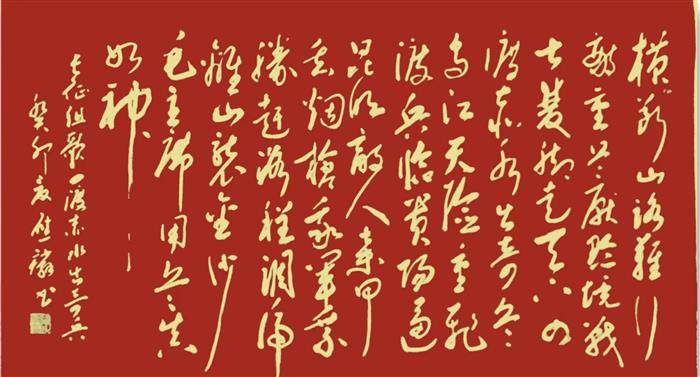 横断山路難行
敌重兵压黔境战
士双脚走天下四
渡赤水出奇兵
乌江天险重飞
渡兵临贵阳逼
昆明敌人弃甲
丢烟枪我军乘
胜赶路程调虎
離山袭金沙
毛主席用兵真
如神
长征组歌四渡赤水出奇兵
癸卯夏书